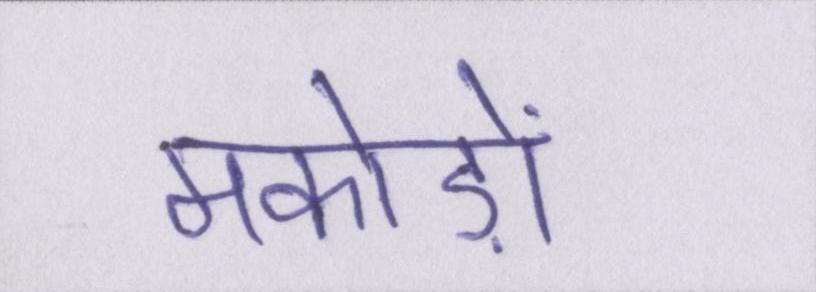 मकोड़ों